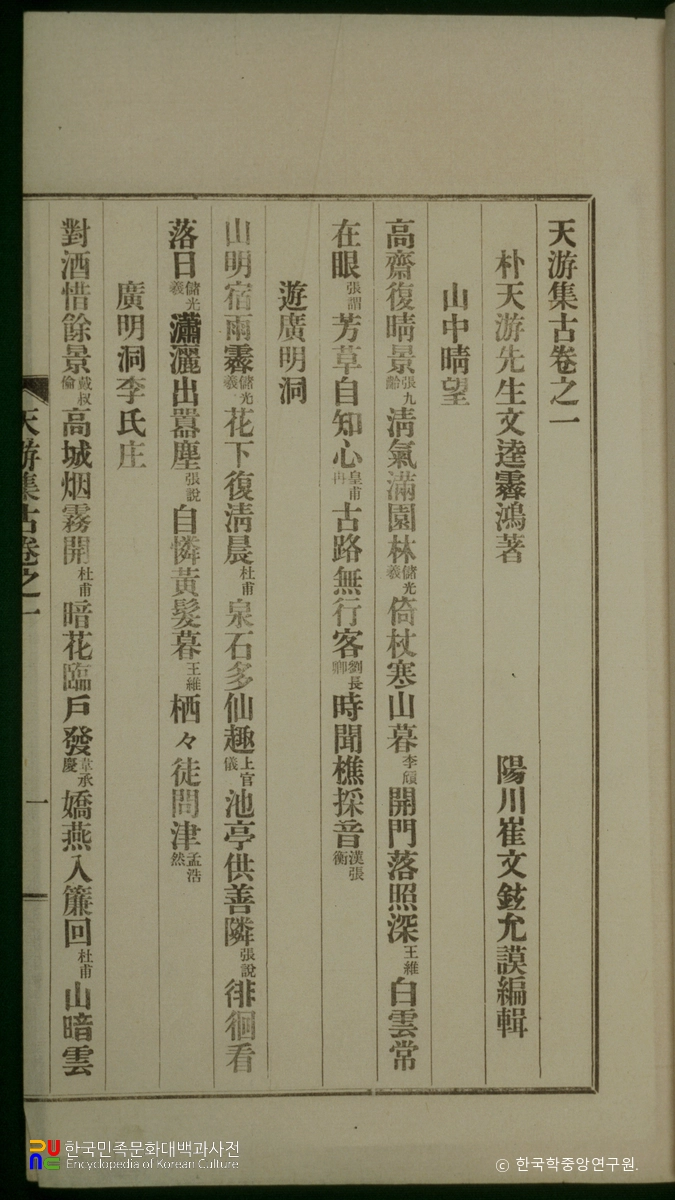 天游集古卷之一
朴天游先生文逵霽鴻著 陽川崔文鉉允謨編輯
山中晴望
高齋復晴景張九齡淸氣滿園林儲光羲倚杖寒山暮李頎開門落照深王維白雲常
在眼張謂芳草自知心皇甫冉古路無行客劉長卿時聞樵採音漢張衡
遊廣明洞
山明宿雨霽儲光羲花下復淸晨杜甫泉石多仙趣上官儀池亭供善隣張說徘徊看
落日儲光羲瀟灑出囂塵張說自憐黃髮暮王維栖々徒問津孟浩然
廣明洞李氏庄
對酒惜餘景戴叔倫高城烟霧開杜甫暗花臨戶發韋承慶嬌燕入簾回杜甫山暗雲
天游集古卷之一 一
한국민족문화대백과사전
Encyclopedia of Korean Culture
© 한국학중앙연구원.